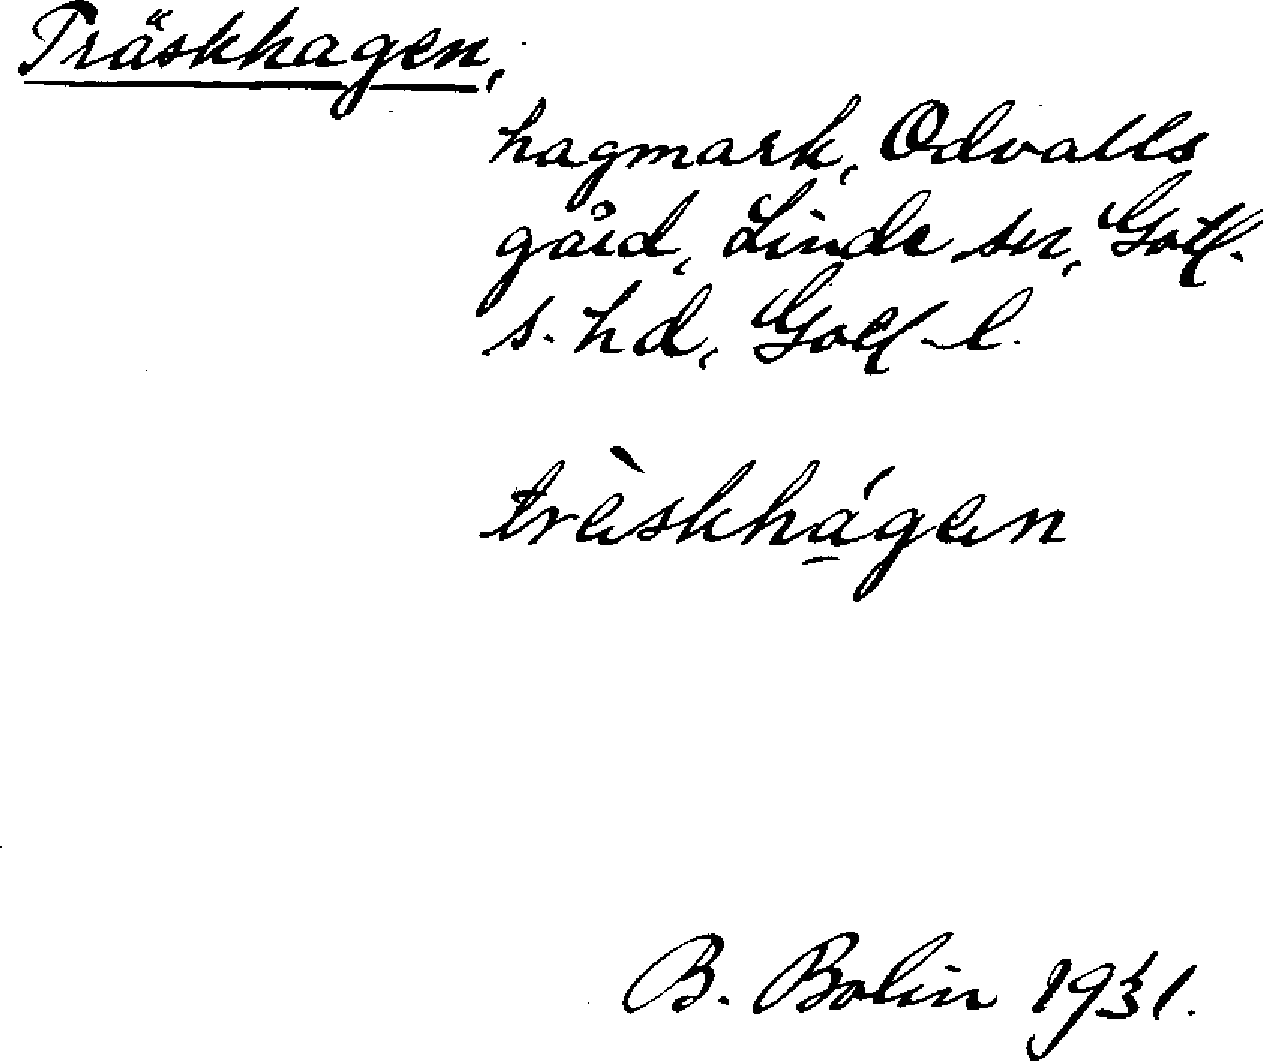 Träskhagen,
hagmark, Odvalls
gård, Linde sn, Gotl.
s. hd, Gotl. l.
träskhágen
B. Bolin 1931.